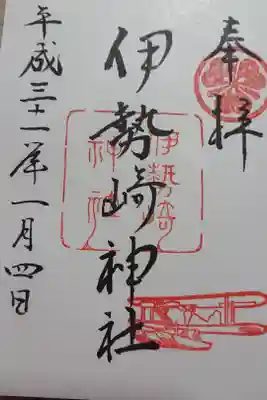 奉拝
伊勢崎神社
伊勢崎
神社
平成三十一年一月四日